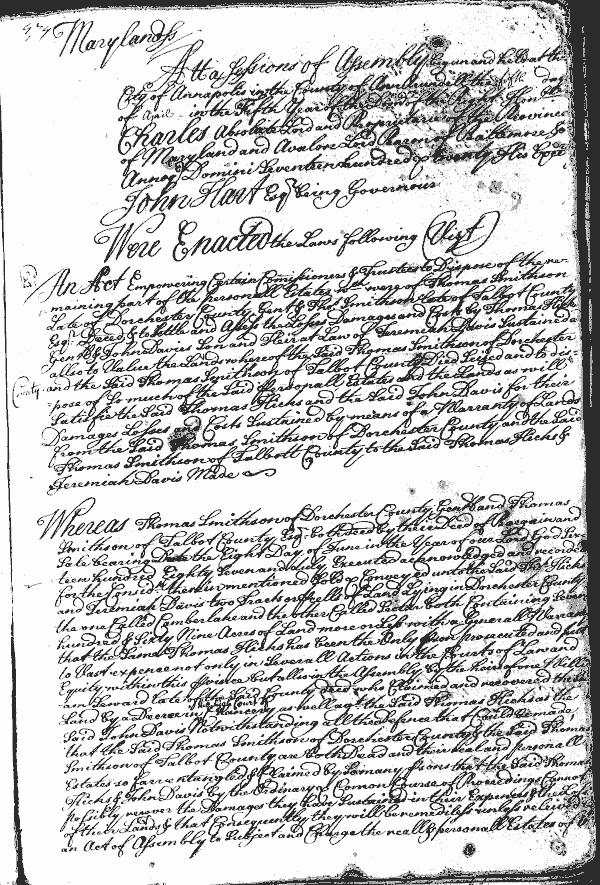 Maryland ss
Att a Sessions of Assembly begun and held at the
City of Annapolis in the County of Ann Arundell the fifth day
of April in the Fifth Year of the Dominion of the Right Hon
Charles Absolute Lord and Proprietare of the Provinces
of Maryland and Avalon Lord Baron of Baltemore &c
Annoq Domini Seventeen hundred & twenty His Excy
John Hart Esqr being Governour
Were Enacted the Laws following Vizt
An Act Empowering Certain Comissioners & Trustees to Dispose of the re-
maining part of the personall Estates of Thomas Smithson
Late of Dorchester County Gent & Thos Smithson Late of Talbot County
Esqr Deced & to Settle and Assess the Losses Damages and Costs by Thomas Hicks
Gent & John Davis Son and Heir at Law of Jeremiah Davis Sustained
allso to Value the Lands whereof the Said Thomas Smithson of Dorchester
County and the Said Thomas Smithson of Talbot County Died Seized and to dis-
pose of So much of the Said Personall Estates and the Lands as will
Satisfie the Said Thomas Hicks and the Said John Davis for their
Damages Losses and Costs Sustained by means of a Warranty of Lands
from the Said Thomas Smithson of Dorchester County and the Said
Thomas Smithson of Talbott County to the Said Thomas Hicks &
Jeremiah Davis Made
Whereas Thomas Smithson of Dorchester County Gent and Thomas
Smithson of Talbot County Esqr both deced by their Deed of Bargain and
Sale bearing Date the Eight Day of June in the Year of our Lord God Six-
teen hundred Eighty Seven and duely Executed acknowledged and recorded
for the Consideration therein mentioned Sold & Conveyed unto the Said Thos Hicks
and Jeremiah Davis two Tracts or parcells of Land Lying in Dorchester County
the one Called Cumberland and the other Called both Containing Seven
hundred & Sixty Nine Acres of Land more or Less with a Generall Warranty
that the Same Thomas Hicks has been the Only person prosecuted and put
to Vast expence not only in Severall Actions in the Courts of Law and
Equity within this province but allso in the Assembly by the Heir of one William
Seward late of the Said County deced who Claimed and recovered the Said
Land by a Decree in the High Court of as well agt the Said Thomas Hicks as the
Said John Davis Notwithstanding all the Defence that Could be made
that the Said Thomas Smithson of Dorchester County & the Said Thomas
Smithson of Talbot County are both Dead and their reall and personall
Estates so farr entangled & Claimed by So many persons that the Said Thomas
Hicks & John Davis by the Ordinary & Comon Course of Proceedings Cannot
possibly recover the Damages they have Sustained in their Expences & the Loss
of their Lands & that Consequently they will be remediless unless relieved
an Act of Assembly to Subject and Charge the reall & personall Estates of